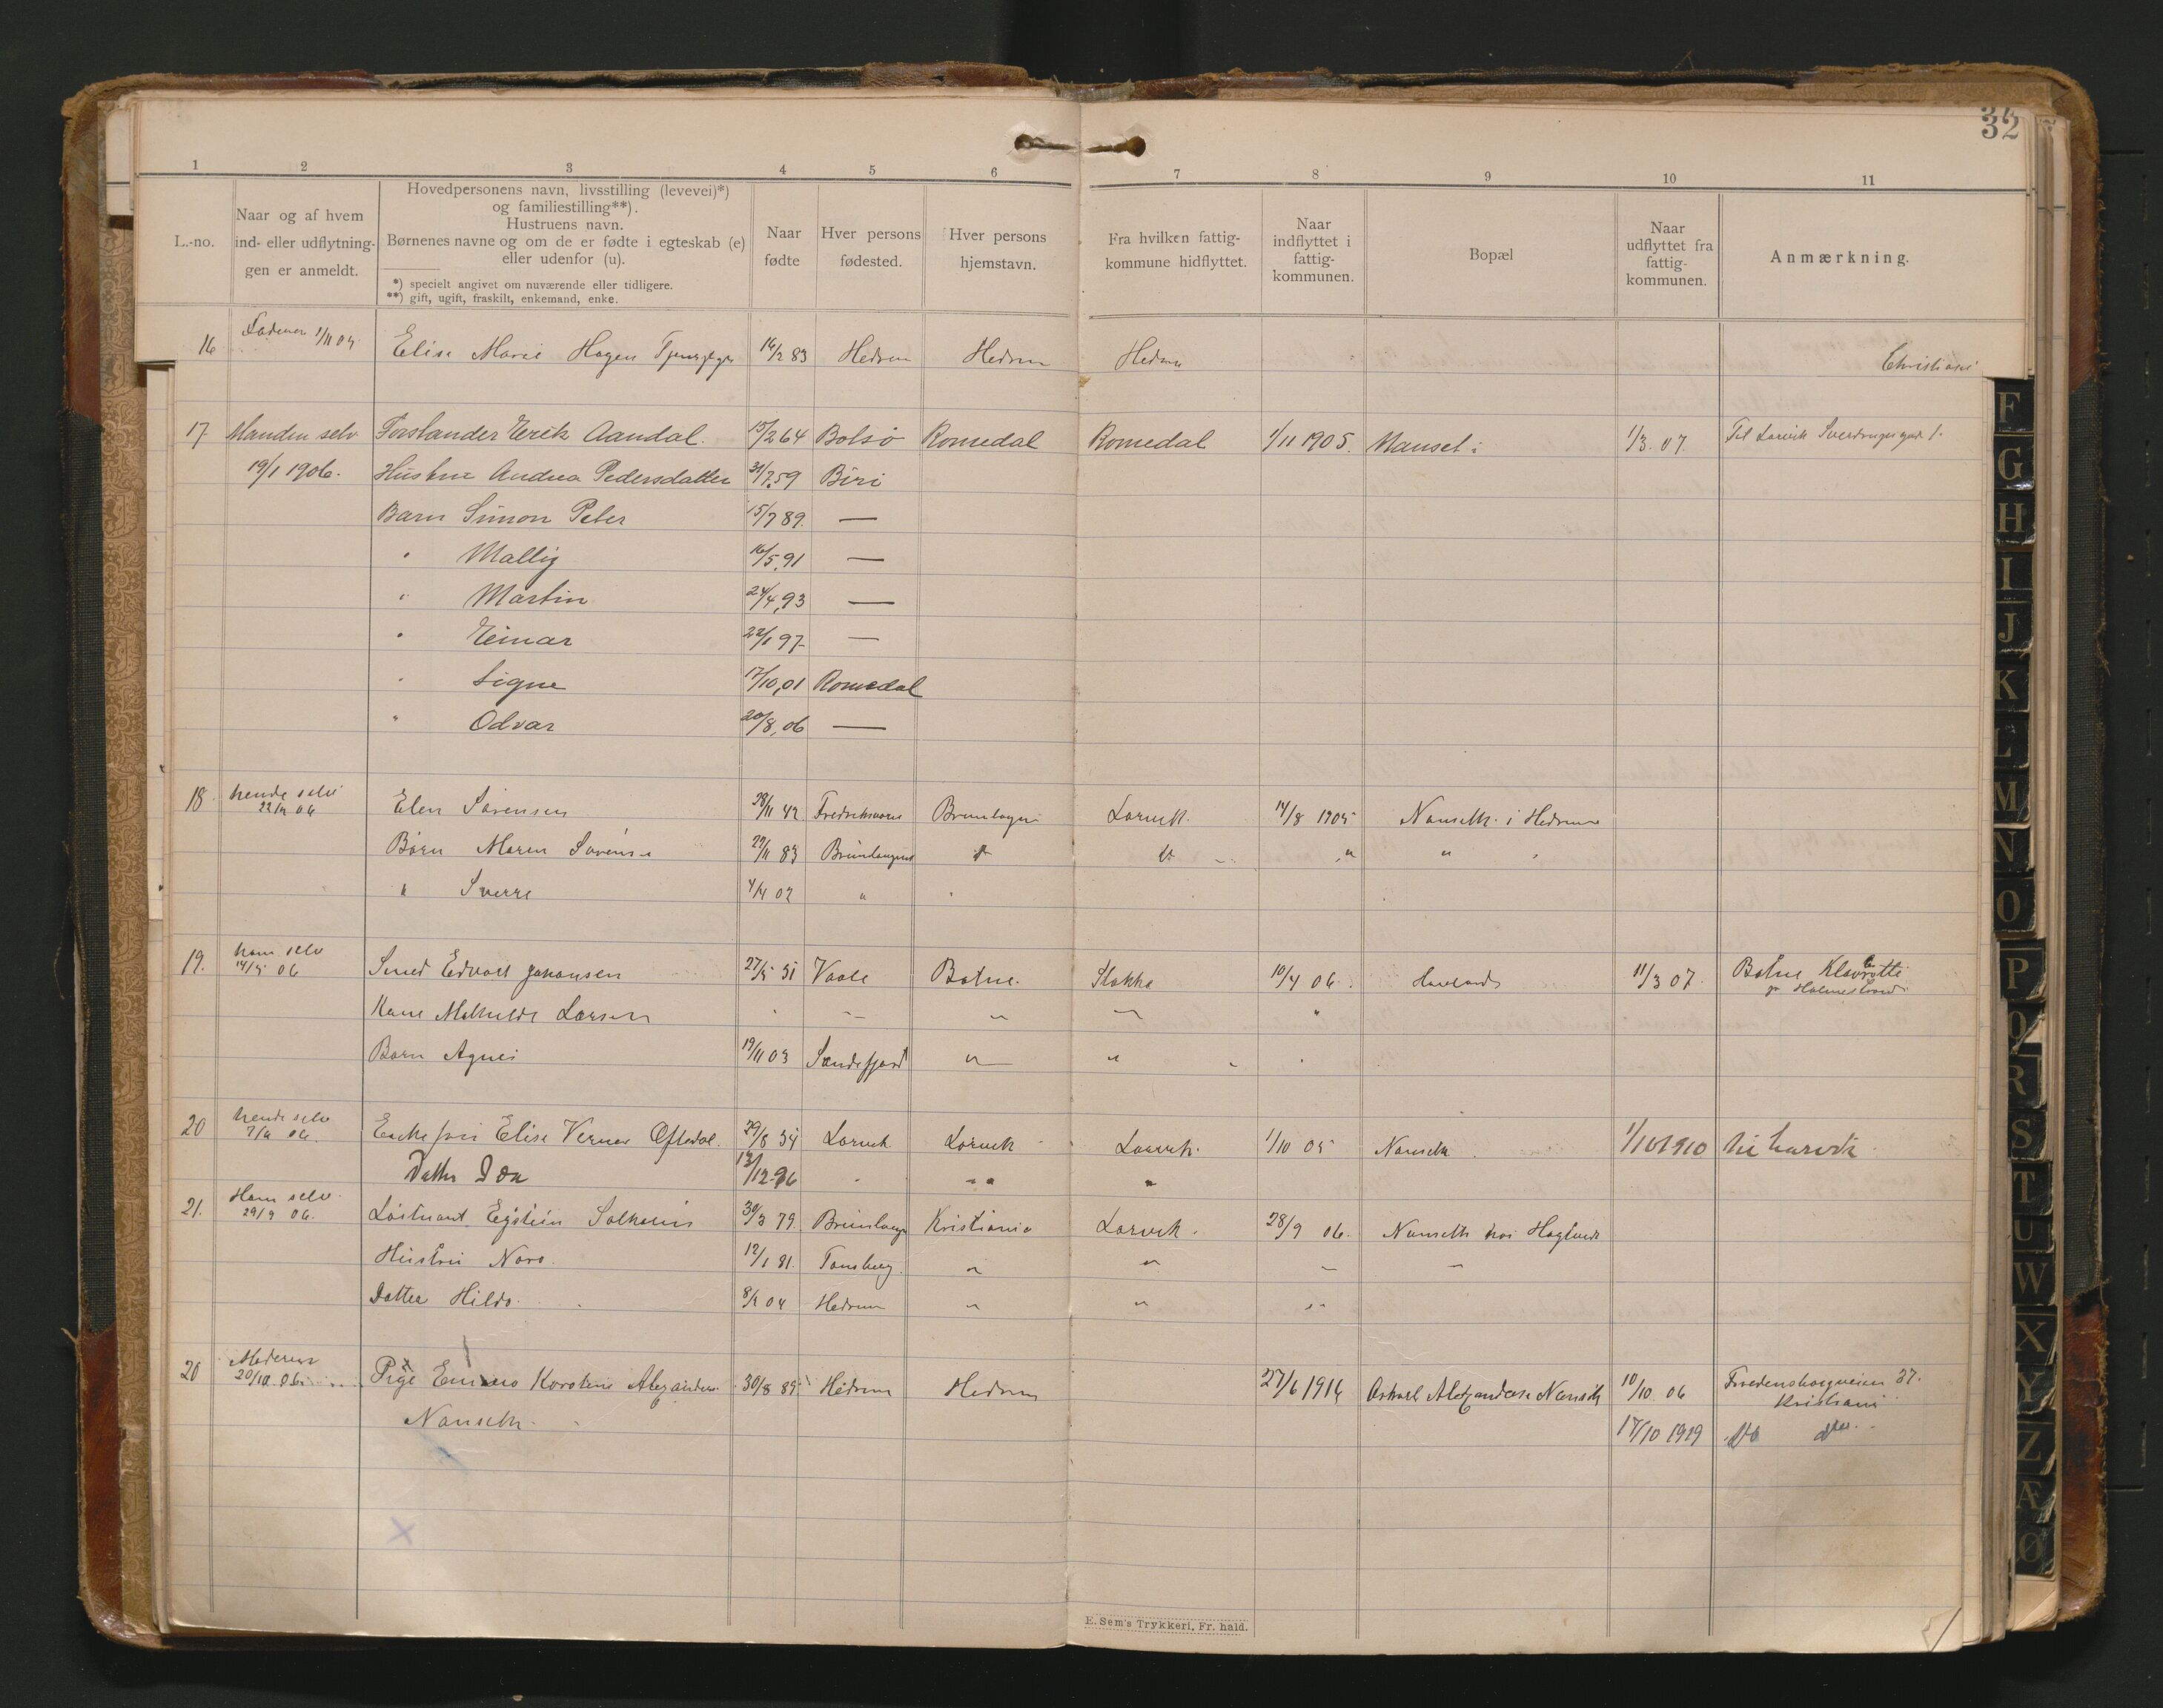 32
1 2 3 4 5 6 7 8 9 10 11
L.-no.
Naar og af hvem
ind- eller udflytnin-
gen er anmeldt.
Hovedpersonens navn, livsstilling (levevei)*)
og familiestilling**).
Hustruens navn.
Børnenes navne og om de er fødte i egteskab (e)
eller udenfor (u).
*) specielt angivet om nuværende eller tidligere.
**) gift, ugift, fraskilt, enkemand, enke.
Naar
fødte
Hver persons
fødested.
Hver persons
hjemstavn.
Fra hvilken fattig-
kommune hidflyttet.
Naar
indflyttet i
fattig-
kommunen.
Bopæl
Naar
udflyttet fra
fattig-
kommunen.
Anmærkning.
16 Faderen 1/11 05 Elise Marie Hagen 14/2 83 Hedrum Hedrum Hedrum
17 Manden selv Forstander Erik Aandal. 15/2 64 Bolsö Romedal Romedal 1/11 1905. Nanset i 1/3. 07. Til Larvik Sverdrups gade 1.
19/1 1906. Hustru Andrea Pedersdatter 31/7.59 Biri
Barn Simon Peter 15/7 89. —
" Mallig 16/5.91 —
" Martin 24/4.93 —
" Einar 22/1 97 —
" Signe 17/10.01 Romedal
" Odvar 20/8.06 —
18. hende selv
22/2 06 Elen Sørensen 28/11 42 Fredriksværn Brunlagn Larvik. 14/8 1905 Nanseth i Hedrum
Børn Maren Sørensen 29/11 83 Brunlangnes
" Sverre 4/4 02 "
19. ham selv
14/5 06 Smed Edvart Johansen 27/5 51 Vaale Botne. Stokke 10/4 06. 11/3 07. Botne
pr Holmestrand
Kone Mathilde Larsen
Barn Agnes 19/11 03 Sandefjord " "
20 hende selv
7/4 06. Enkefru Elise Verner Oftedal. 29/8 34 Larvik Larvik Larvik. 1/10 05 Nanseth 1/10 1910 til Larvik
Datter Ida 13/12-96 " "
21. Ham selv
29/9 06. Løitnant Eystein Solheim 30/3 79. Brunlangn Kristiania Larvik. 28/9 06. Nanseth hos Haglund
Hustru Nora. 12/1 81. Tønsberg. " "
Datter Hilda. 8/2 04 Hedrum " "
20 Moderen
20/10 06. Pige Emma Karoline Alexandersen 30/8 89 Hedrum Hedrum 27/6 1914 Oskar Alexandersen Nanseth 10/10. 06 Fredensborgveien 37.
Kristiania
Nanseth. 17/10 1919
E. Sem's Trykkeri, Fr. hald.
F
G
H
I
J
K
L
M
N
O
P
Q
R
S
T
U
W
X
Y
Z
Æ
Ø